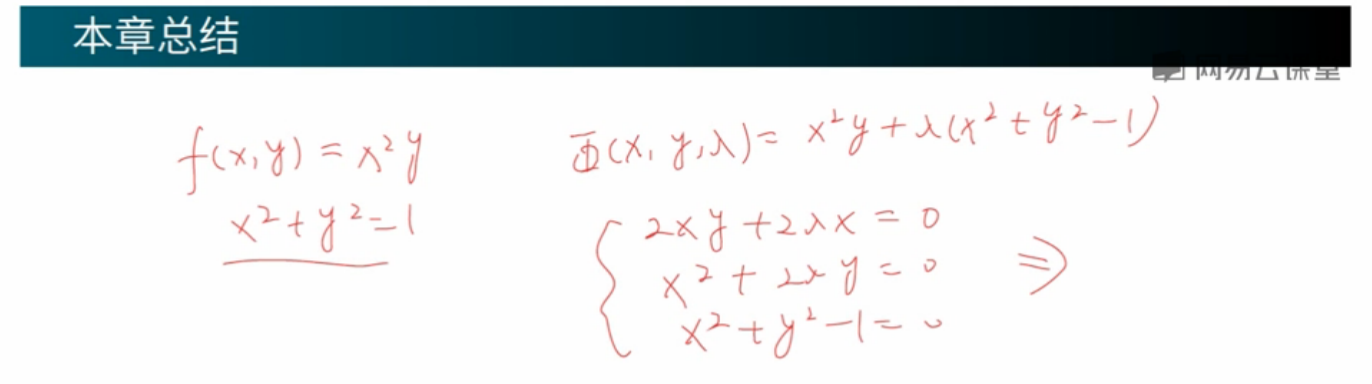 本章总结
网易云课堂
f(x,y)=x²y
x²+y²=1
Φ(x,y,λ)=x²y+λ(x²+y²-1)
2xy+2λx=0
x²+2λy=0
x²+y²-1=0
⇒